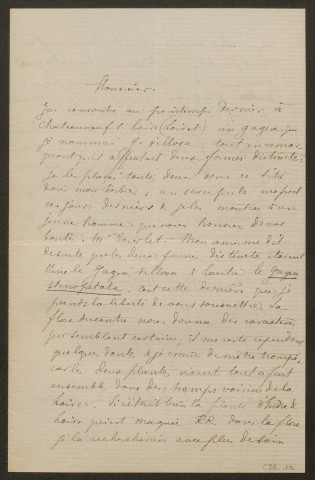 Monsieur.
J'ai rencontré au printemps dernier à
Chateauneuf s. Loire (Loiret) un gagea que
je nommai G. villosa, tout en remar
quant qu'il affectait deux formes distinctes
je les plaçai toute deux sous ce titre
dans mon herbier, un scrupule me prit
ces jours derniers & je les montrai à un
jeune homme que vous honorez de vos
bonté. Mr. Mon ami me dit
ensuite que les deux formes distinctes étaient
l'une le Gagea villosa & l'autre le Gagea
stenopetala. C'est cette dernière que je
prends la liberté de vous soumettre. La
flore du centre nous donna des caractères
qui semblent certains, il me reste cependant
quelque doute & je crains de m'être trompé,
car les deux plantes vivent tout à fait
ensemble dans des champs voisins de la
Loire. Si c'était bien la plante d'Indre &
Loire qui est marquée RR dans la flore
je la rechercherais avec plus de soin
C36-12